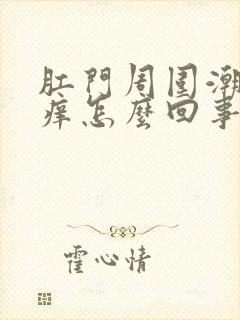 肛門周围潮
痒怎麼回事
霍心情